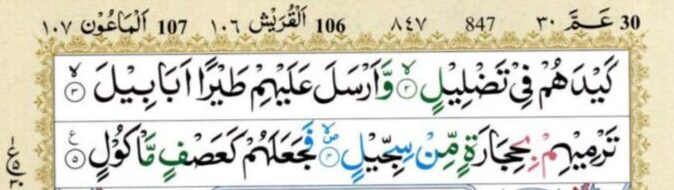 30 عَمَّ ٣٠ 847 ٨٤٧ 106 اَلْقُرَيْش ١٠٦ 107 اَلْمَاعُوْن ١٠٧
كَيْدَهُمْ فِيْ تَضْلِيْلٍ ۙ‏﴿۲﴾ وَّاَرْسَلَ عَلَيْهِمْ طَيْرًا اَبَابِيْلَ ۙ‏﴿۳﴾
تَرْمِيْهِمْ بِحِجَارَةٍ مِّنْ سِجِّيْلٍ ۙ‏﴿۴﴾ فَجَعَلَهُمْ كَعَصْفٍ مَّاْكُوْلٍ ﴿۵﴾ ع